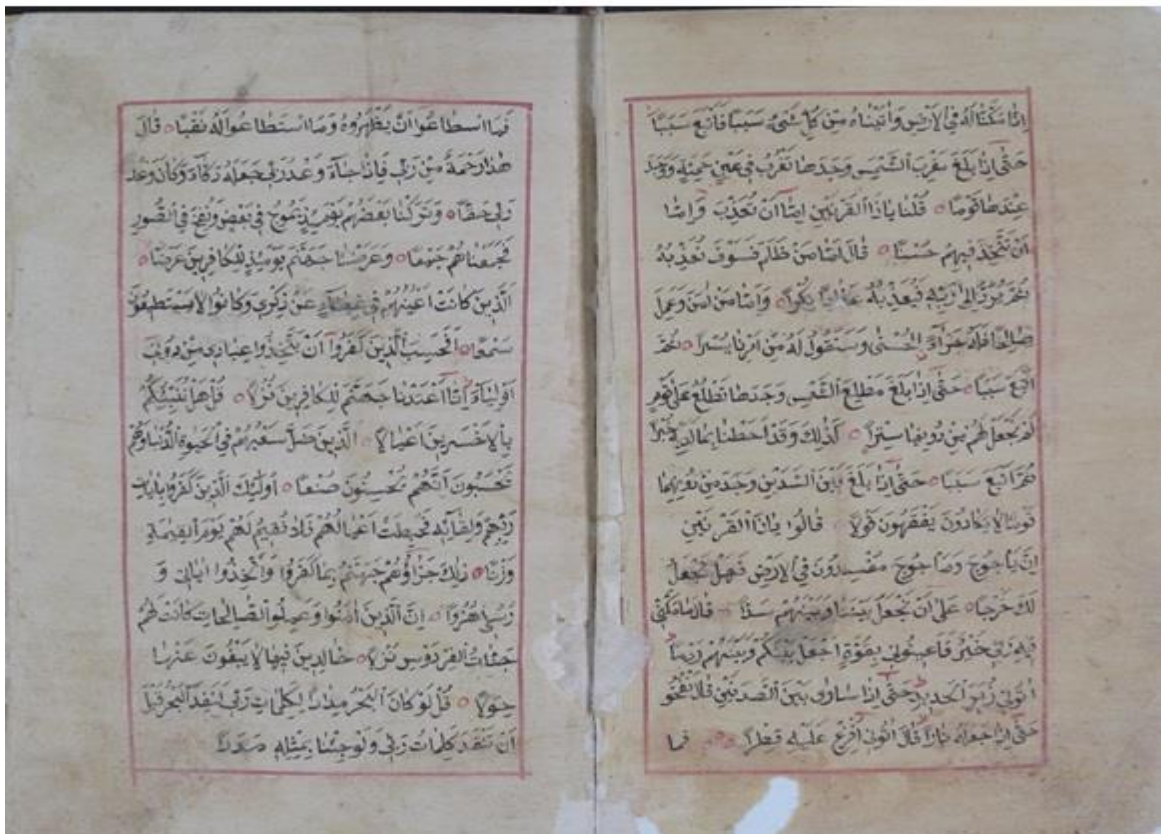 إنا مكنا له في الأرض وآتيناه من كل شيء سببا فأتبع سببا
حتى إذا بلغ مغرب الشمس وجدها تغرب في عين حمئة ووجد
عندها قوما قلنا ياذا القرنين إما أن تعذب وإما
أن تتخذ فيهم حسنا قال أما من ظلم فسوف نعذبه
ثم يرد إلى ربه فيعذبه عذابا نكرا وأما من آمن وعمل
صالحا فله جزاء الحسنى وسنقول له من أمرنا يسرا ثم
أتبع سببا حتى إذا بلغ مطلع الشمس وجدها تطلع على قوم
لم نجعل لهم من دونها سترا كذلك وقد أحطنا بما لديه خبرا
ثم أتبع سببا حتى إذا بلغ بين السدين وجد من دونهما
قوما لا يكادون يفقهون قولا قالوا ياذا القرنين
إن يأجوج ومأجوج مفسدون في الأرض فهل نجعل
لك خرجا على أن تجعل بيننا وبينهم سدا قال ما مكني
فيه ربي خير فأعينوني بقوة أجعل بينكم وبينهم ردما
آتوني زبر الحديد حتى إذا ساوى بين الصدفين قال انفخوا
حتى إذا جعله نارا قال آتوني أفرغ عليه قطرا
فما
فما اسطاعوا أن يظهروه وما استطاعوا له نقبا قال
هذا رحمة من ربي فإذا جاء وعد ربي جعله دكاء وكان وعد
ربي حقا وتركنا بعضهم يومئذ يموج في بعض ونفخ في الصور
فجمعناهم جمعا وعرضنا جهنم يومئذ للكافرين عرضا
الذين كانت أعينهم في غطاء عن ذكري وكانوا لا يستطيعون
سمعا أفحسب الذين كفروا أن يتخذوا عبادي من دوني
أولياء إنا أعتدنا جهنم للكافرين نزلا قل هل ننبئكم
بالأخسرين أعمالا الذين ضل سعيهم في الحيوة الدنيا وهم
يحسبون أنهم يحسنون صنعا أولئك الذين كفروا بآيات
ربهم ولقائه فحبطت أعمالهم فلا نقيم لهم يوم القيمة
وزنا ذلك جزاؤهم جهنم بما كفروا واتخذوا آياتي و
رسلي هزوا إن الذين آمنوا وعملوا الصالحات كانت لهم
جنات الفردوس نزلا خالدين فيها لا يبغون عنها
حولا قل لو كان البحر مدادا لكلمات ربي لنفد البحر قبل
أن تنفد كلمات ربي ولو جئنا بمثله مددا